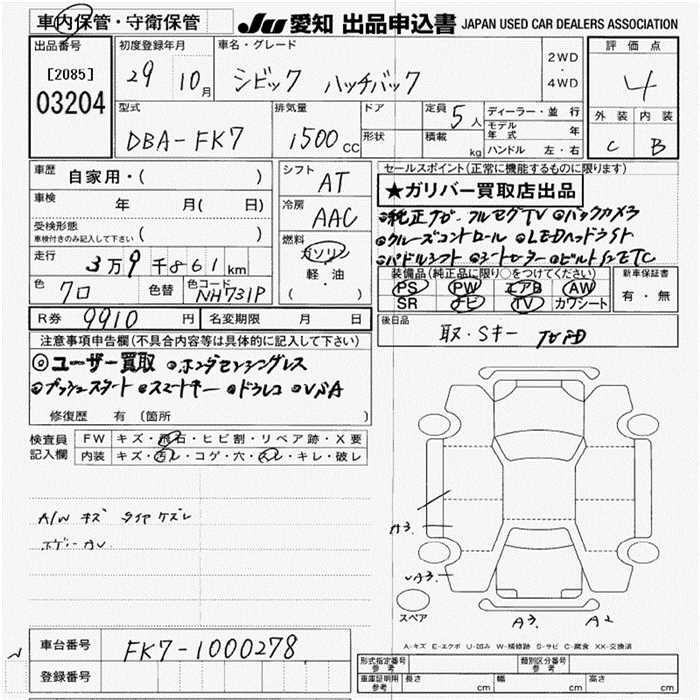 車内保管・守衛保管
JU 愛知 出品申込書 JAPAN USED CAR DEALERS ASSOCIATION
出品番号
[2085]
03204
初度登録年月
29 10月
車名・グレード
シビック ハッチバック
2WD
・
4WD
評価点
4
外装 内装
C B
型式
DBA-FK7
排気量
1500cc
ドア
形状
定員 5人
積載 kg
ディーラー・並行
モデル年式 年
ハンドル 左・右
車歴 自家用・( )
車検 年 月( 日)
受検形態
車検付きのみ記入して下さい ( )
走行 3万9千861km
色 クロ 色替 色コード NH731P
シフト AT
冷房 AAC
燃料 ガソリン
軽・油
( )
セールスポイント(正常に機能するものに限ります)
★ガリバー買取店出品
◎純正ナビ・フルセグTV ◎バックカメラ
◎クルーズコントロール ◎LEDヘッドライト
◎パドルシフト ◎シートヒーター ◎ビルトインETC
装備品(純正品に限り○をつけてください)
PS PW エアB AW
SR ナビ TV カワシート
新車保証書
有・無
R券 9910円 名変期限 月 日
後日品
取・Sキー
注意事項申告欄(不具合内容等は具体的に記入して下さい)
◎ユーザー買取 ◎ホンダセンシングレス
◎プッシュスタート ◎スマートキー ◎ドラレコ ◎VSA
修復歴 有 (箇所 )
検査員記入欄
FW キズ・飛石・ヒビ割・リペア跡・X要
内装 キズ・汚レ・コゲ・穴・スレ・キレ・破レ
A/W キズ タイヤ ケズレ
A3.
A3.
スペア
A3. A2
A-キズ E-エクボ U-凹み W-補修跡 S-サビ C-腐食 XX-交換済
車台番号 FK7-1000278
登録番号
形式指定番号 参考
類別区分番号 参考
車庫証明用 参考 長さ cm 幅 cm 高さ cm